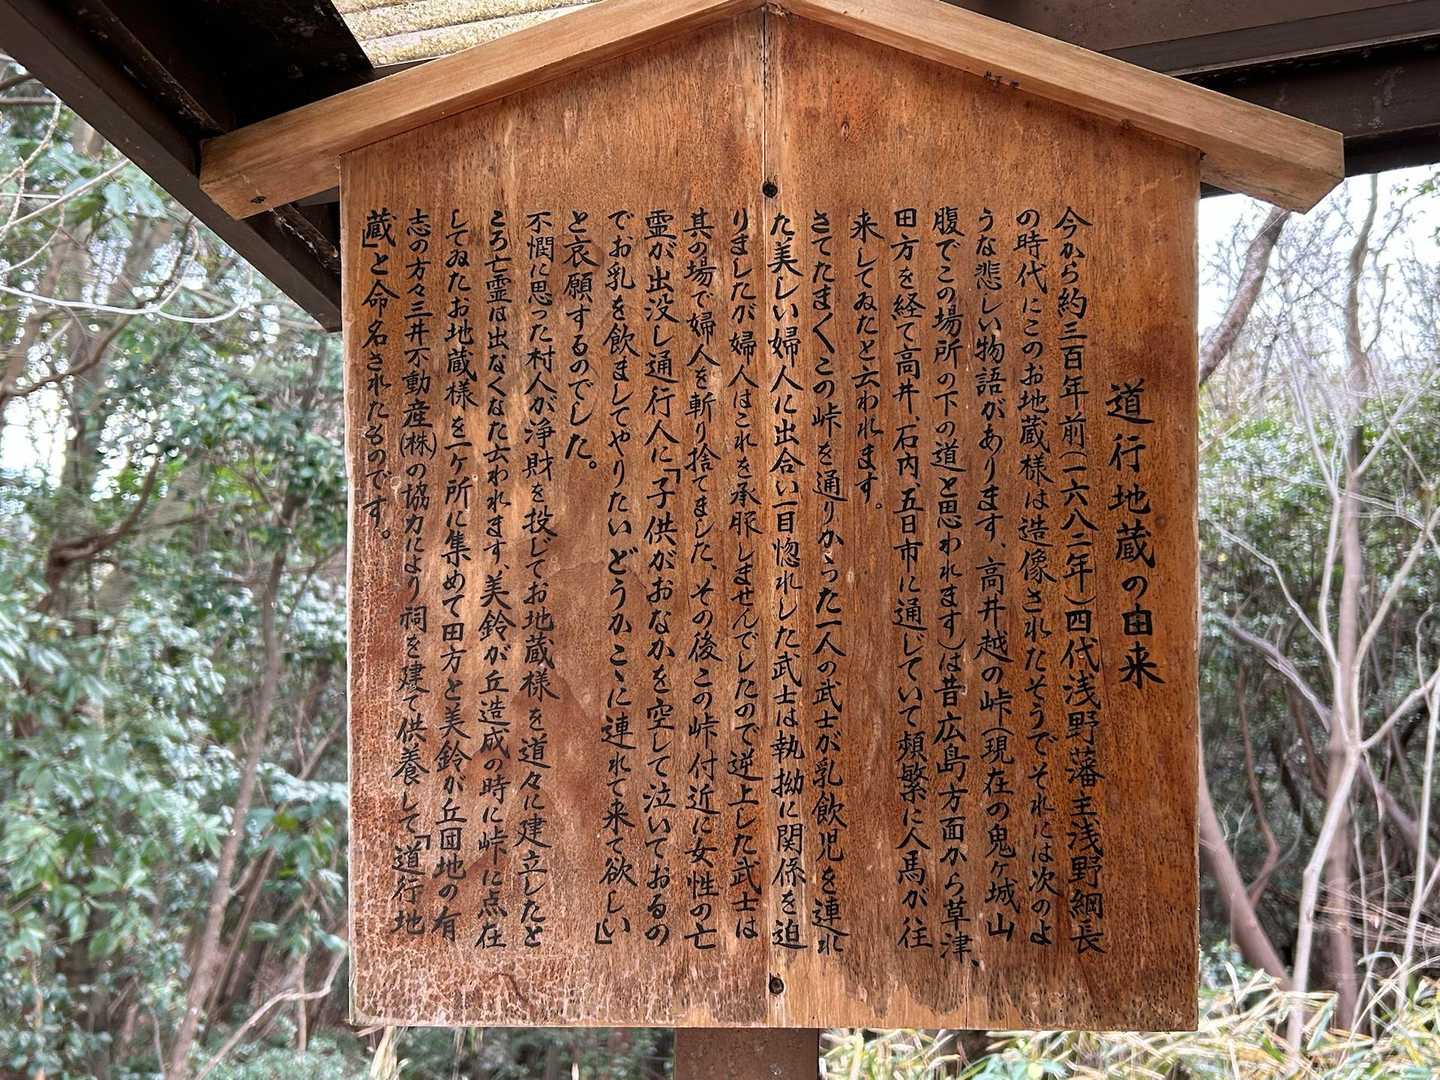 道行地蔵の由来
今から約三百年前(一六八二年)四代浅野藩主浅野綱長
の時代にこのお地蔵様は造像されたそうでそれには次のよ
うな悲しい物語があります、高井越の峠(現在の鬼ヶ城山
腹でこの場所の下の道と思われます)は昔広島方面から草津、
田方を経て高井、石内、五日市に通じていて頻繁に人馬が往
来してゐたと云われます。
さてたまくこの峠を通りかゝった一人の武士が乳飲児を連れ
た美しい婦人に出合い一目惚れした武士は執拗に関係を迫
りましたが婦人はこれを承服しませんでしたので逆上した武士は
其の場で婦人を斬り捨てました、その後この峠付近に女性の亡
霊が出没し通行人に「子供がおなかを空して泣いておるの
でお乳を飲ましてやりたいどうかこゝに連れて来て欲しい」
と哀願するのでした。
不憫に思った村人が浄財を投じてお地蔵様を道々に建立したと
ころ亡霊は出なくなた云われます、美鈴が丘造成の時に峠に点在
してゐたお地蔵様を一ヶ所に集めて田方と美鈴が丘団地の有
志の方々三井不動産(株)の協力により祠を建て供養して「道行地
蔵」と命名されたものです。